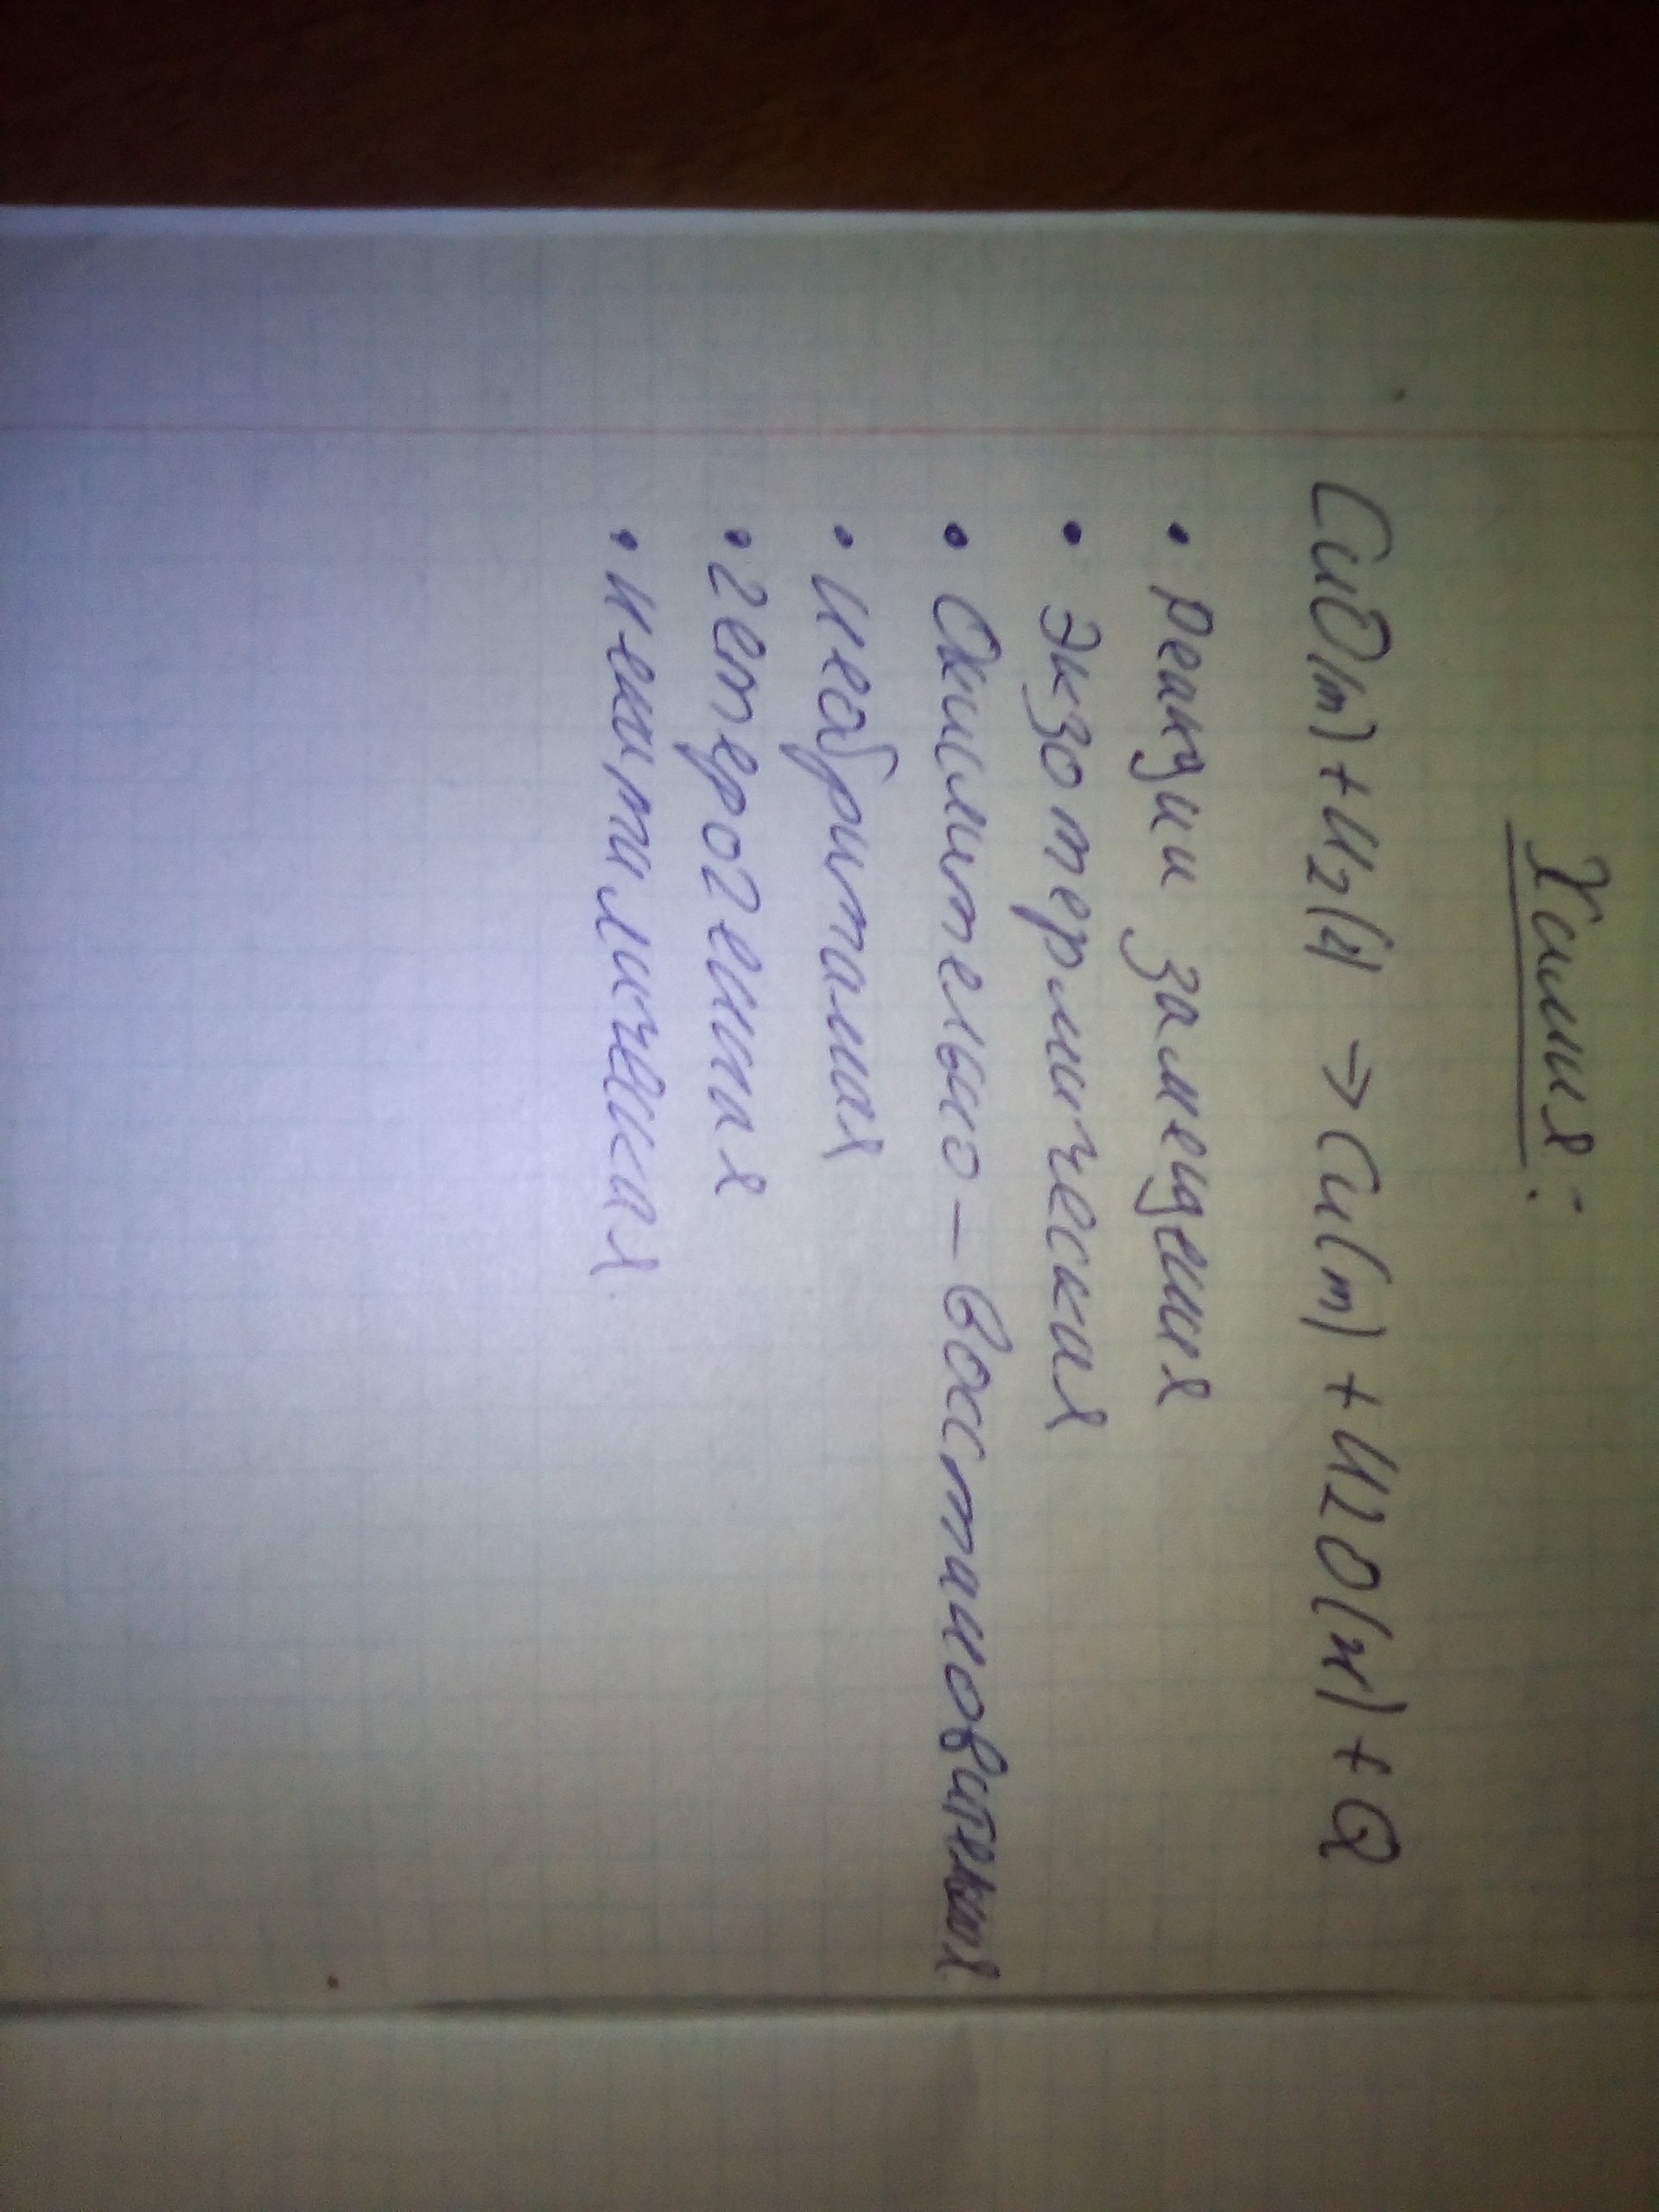 Химия:
CuO(т) + H2(г) → Cu(т) + H2O(ж) + Q
• реакции замещения
• экзотермическая
• Окислительно - восстановительная
• необратимая
• гетерогенная
• некаталическая